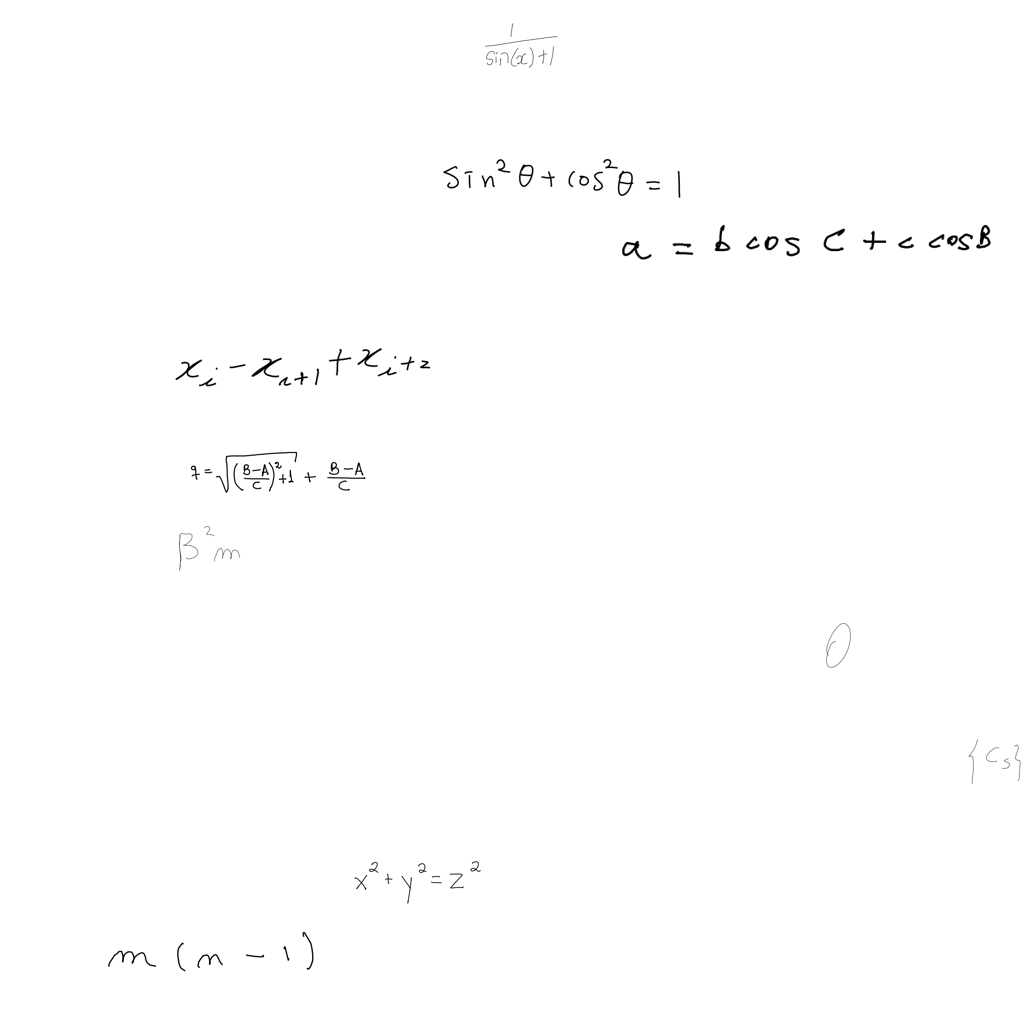 \frac{1}{\sin(x)+1}
\sin^2 θ + \cos^2 θ = 1
a = b \cos C + c \cos B
x_i - x_{i+1} + x_{i+2}
q = \sqrt{(\frac{B-A}{C})^2+1} + \frac{B-A}{C}
β^2 m
0
{C_s}
x^2 + y^2 = z^2
n(n-1)